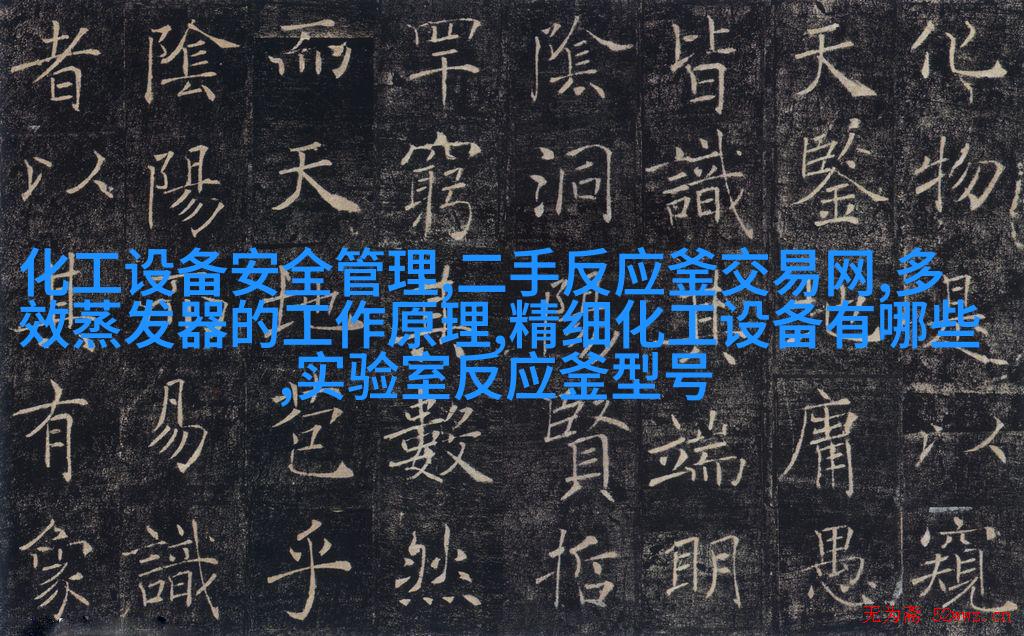 化物是以窺
天鑒地庸愚
皆識其端明
陰洞陽賢哲
罕窮其數然
而天地苞乎
陰陽而易識
者以其有象
化工设备安全管理,二手反应釜交易网,多
效蒸发器的工作原理,精细化工设备有哪些
,实验室反应釜型号
无为斋 52wwz.cn